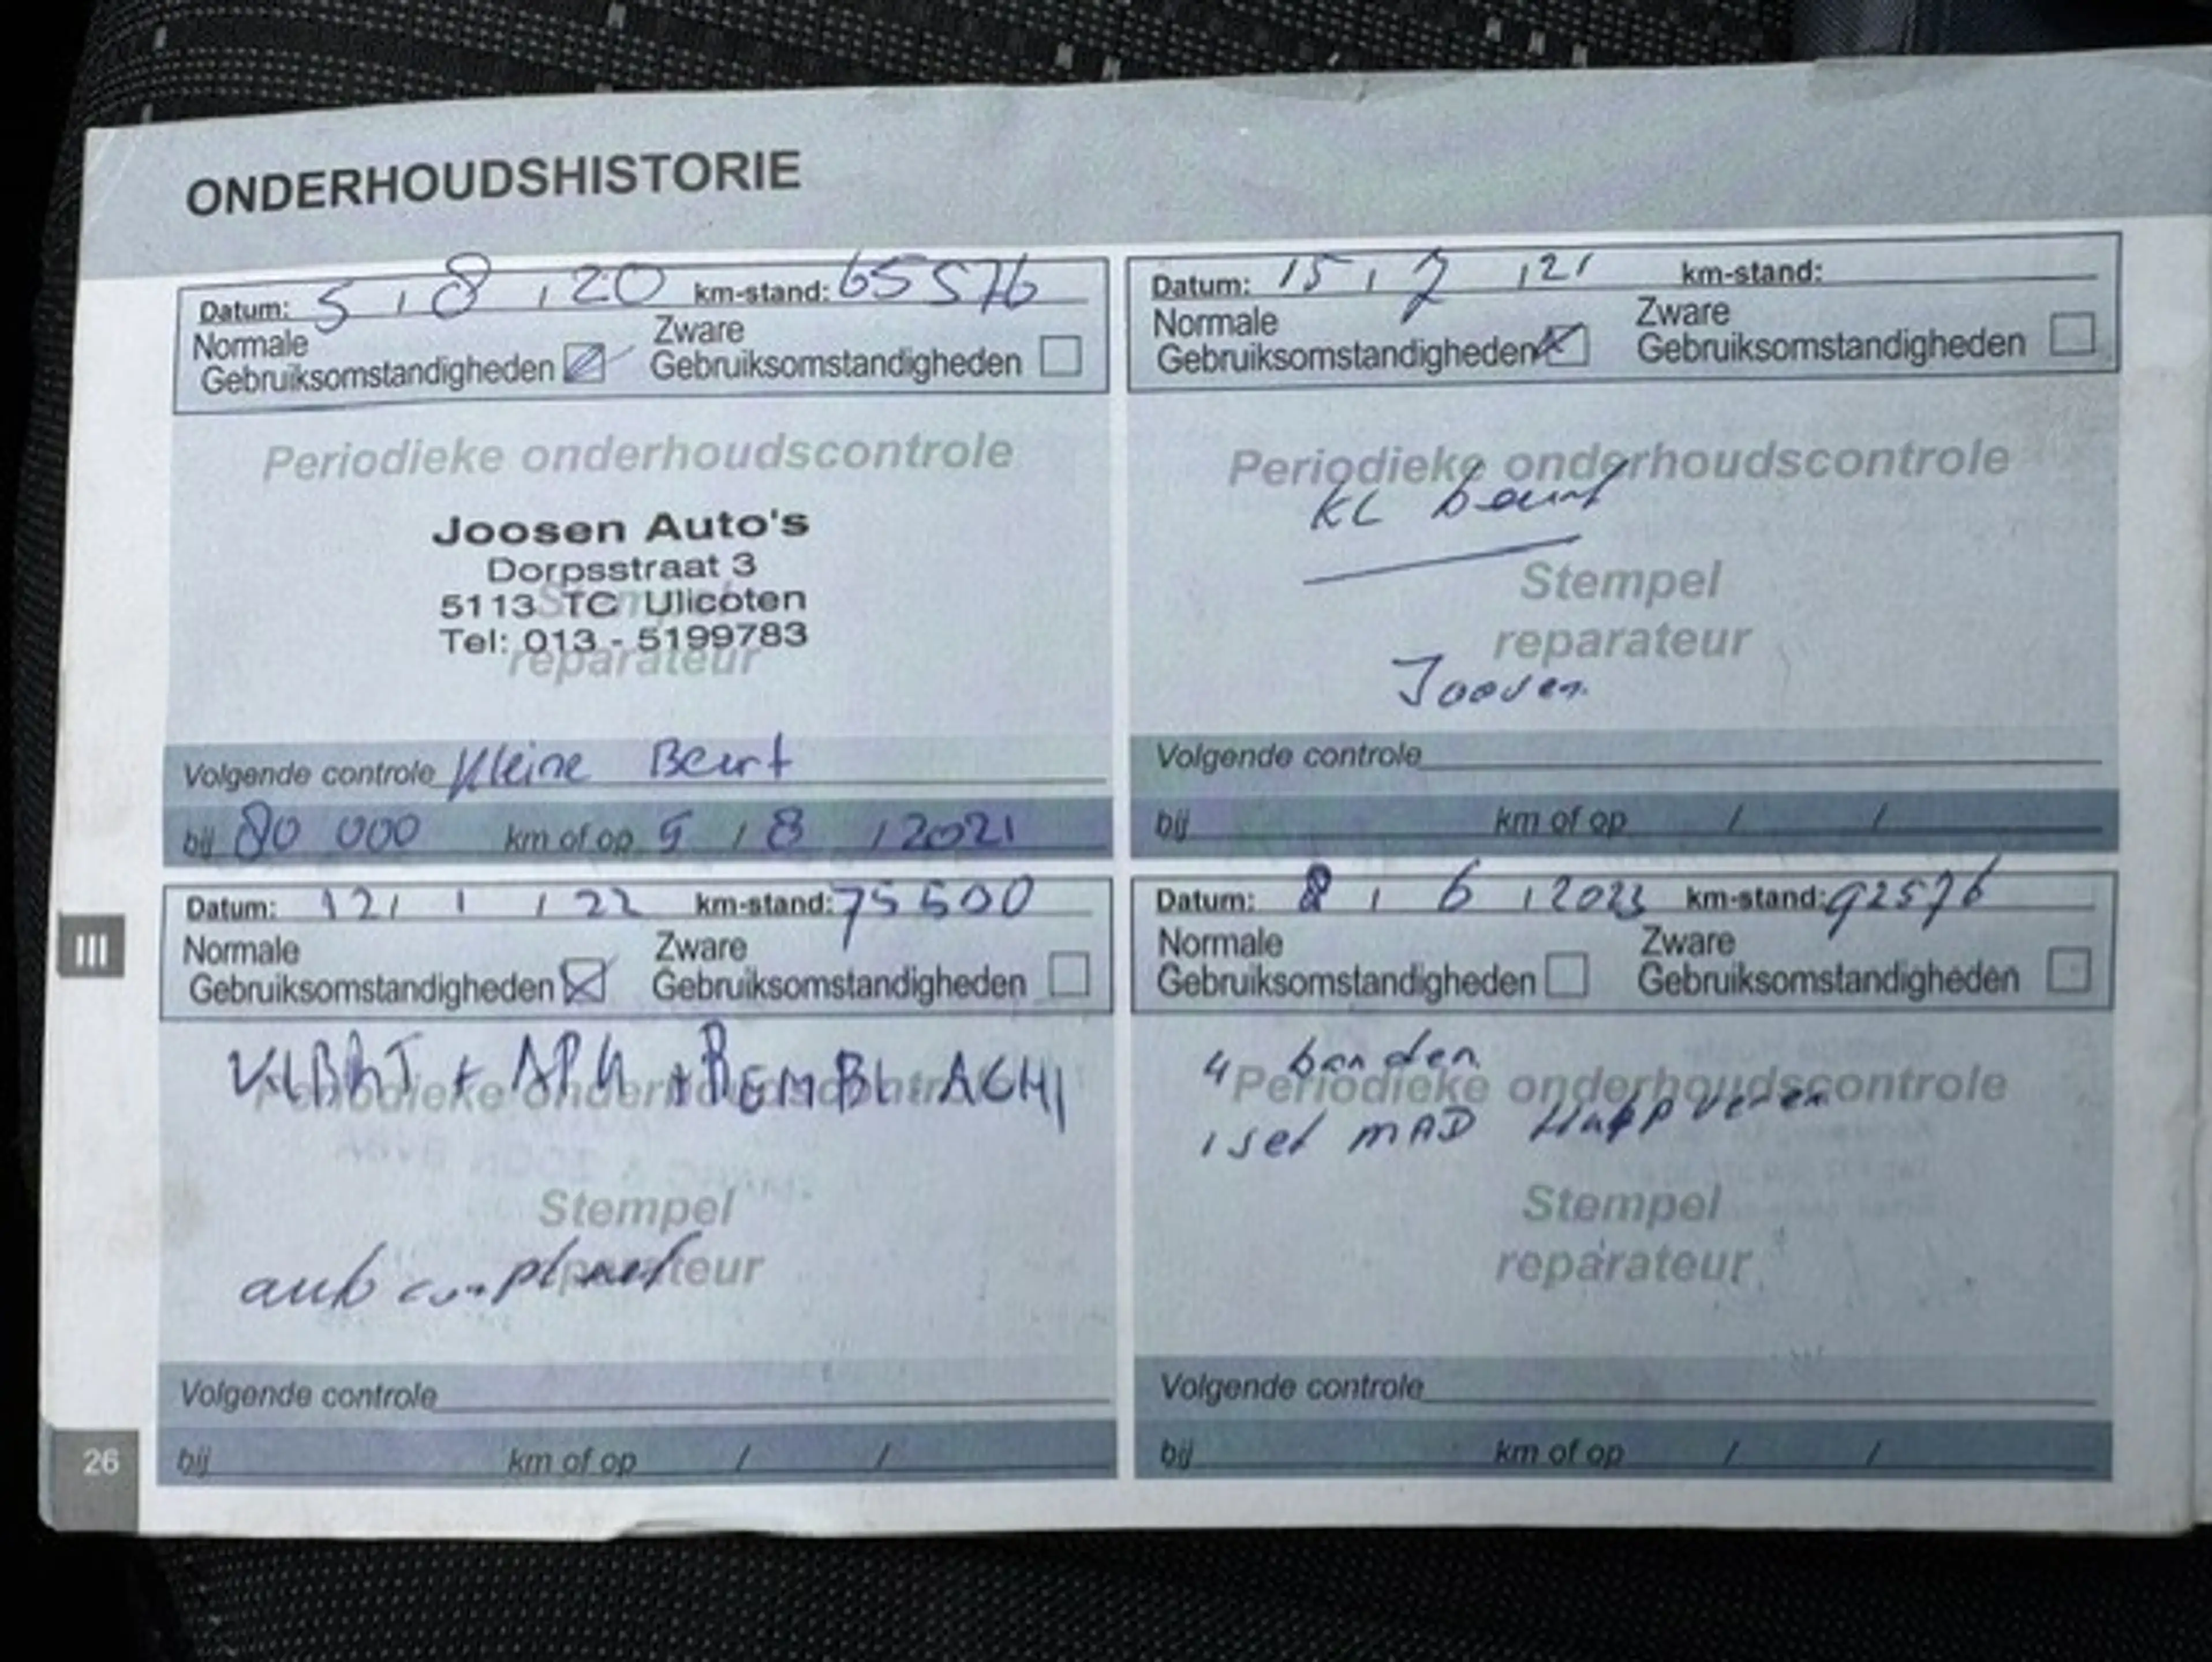 ONDERHOUDSHISTORIE
Datum: 5 / 8 / 20 km-stand: 65576
Normale Gebruiksomstandigheden Zware Gebruiksomstandigheden
Periodieke onderhoudscontrole
Joosen Auto's
Dorpsstraat 3
5113 TC Ulicoten
Tel: 013 - 5199783
reparateur
Volgende controle Kleine Beurt
bij 80 000 km of op 5 / 8 / 2021
Datum: 15 / 7 / 21 km-stand:
Normale Gebruiksomstandigheden Zware Gebruiksomstandigheden
Periodieke onderhoudscontrole
KL beurt
Stempel
reparateur
Joosen
Volgende controle
bij km of op / /
Datum: 12 / 1 / 22 km-stand: 75600
Normale Gebruiksomstandigheden Zware Gebruiksomstandigheden
+ APK +
Periodieke onderhoudscontrole
Stempel
reparateur
Volgende controle
bij km of op / /
Datum: 8 / 6 / 2023 km-stand: 92576
Normale Gebruiksomstandigheden Zware Gebruiksomstandigheden
4 banden
Periodieke onderhoudscontrole
1 set MAD
Stempel
reparateur
Volgende controle
bij km of op / /
III
26